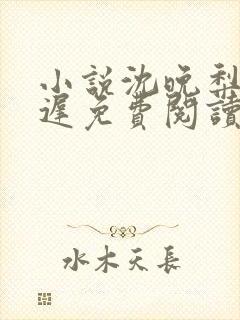 小説沈晚梨
遲免費閱讀
水木天長